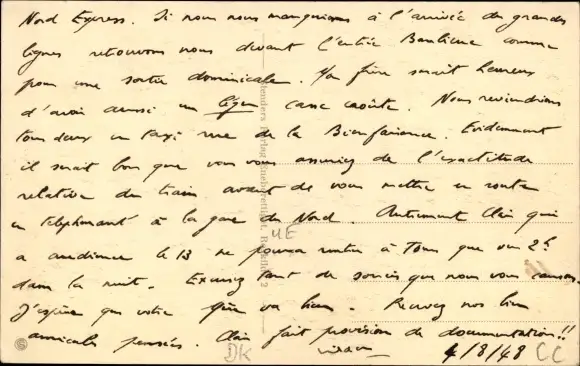 Nord Express. Si nous nous manquions à l'arrivée des grandes
lignes retrouvons nous devant l'entrée Banlieue comme
pour une sortie dominicale. Ma frère serait heureux
d'avoir aussi un léger casse croûte. Nous reviendrions
tous deux en taxi rue de la Bienfaisance. Evidemment
il serait bon que vous vous assuriez de l'exactitude
relative du train avant de vous mettre en route
en téléphonant à la gare du Nord. Autrement Clair qui
a audience le 13 ne pourra rentrer à Tours que vers 2h
dans la nuit. Excusez tant de soucis que nous vous causons.
J'espère que votre frère va bien. Recevez nos bien
amicales pensées. Clair fait provision de documentation!!
4/8/48 CC
DK